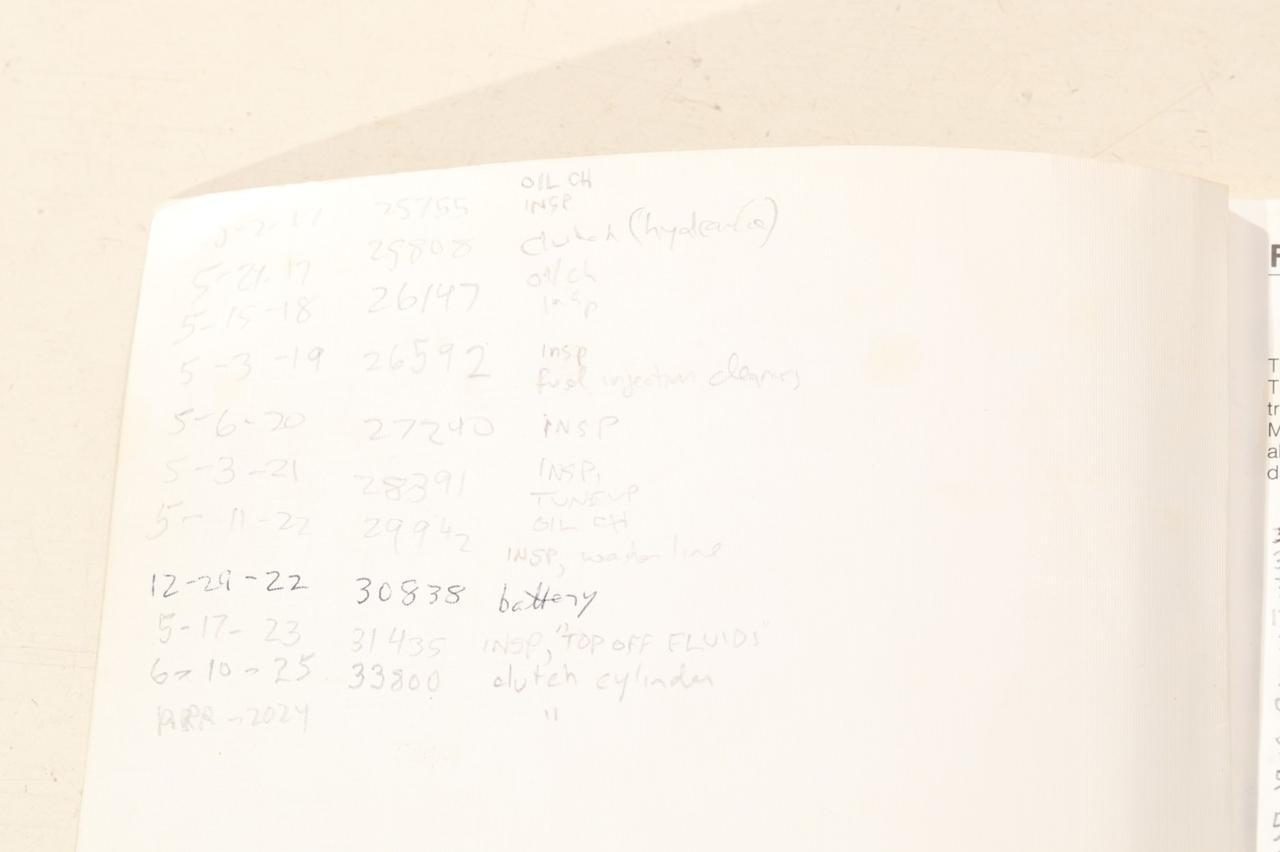 OIL CH
5-2-17 25755 INSP
5-21-17 25808 clutch (hydraulic)
oil ch
5-15-18 26147 insp
5-3-19 26592 insp
fuel injection cleaning
5-6-20 27240 INSP
5-3-21 28391 INSP,
TUNEUP
5-11-22 29942 OIL CH
INSP, washer line
12-29-22 30838 battery
5-17-23 31435 INSP, "TOP OFF FLUIDS"
6-10-25 33800 clutch cylinder
APR-2024 "
F
T
T
tr
M
al
d